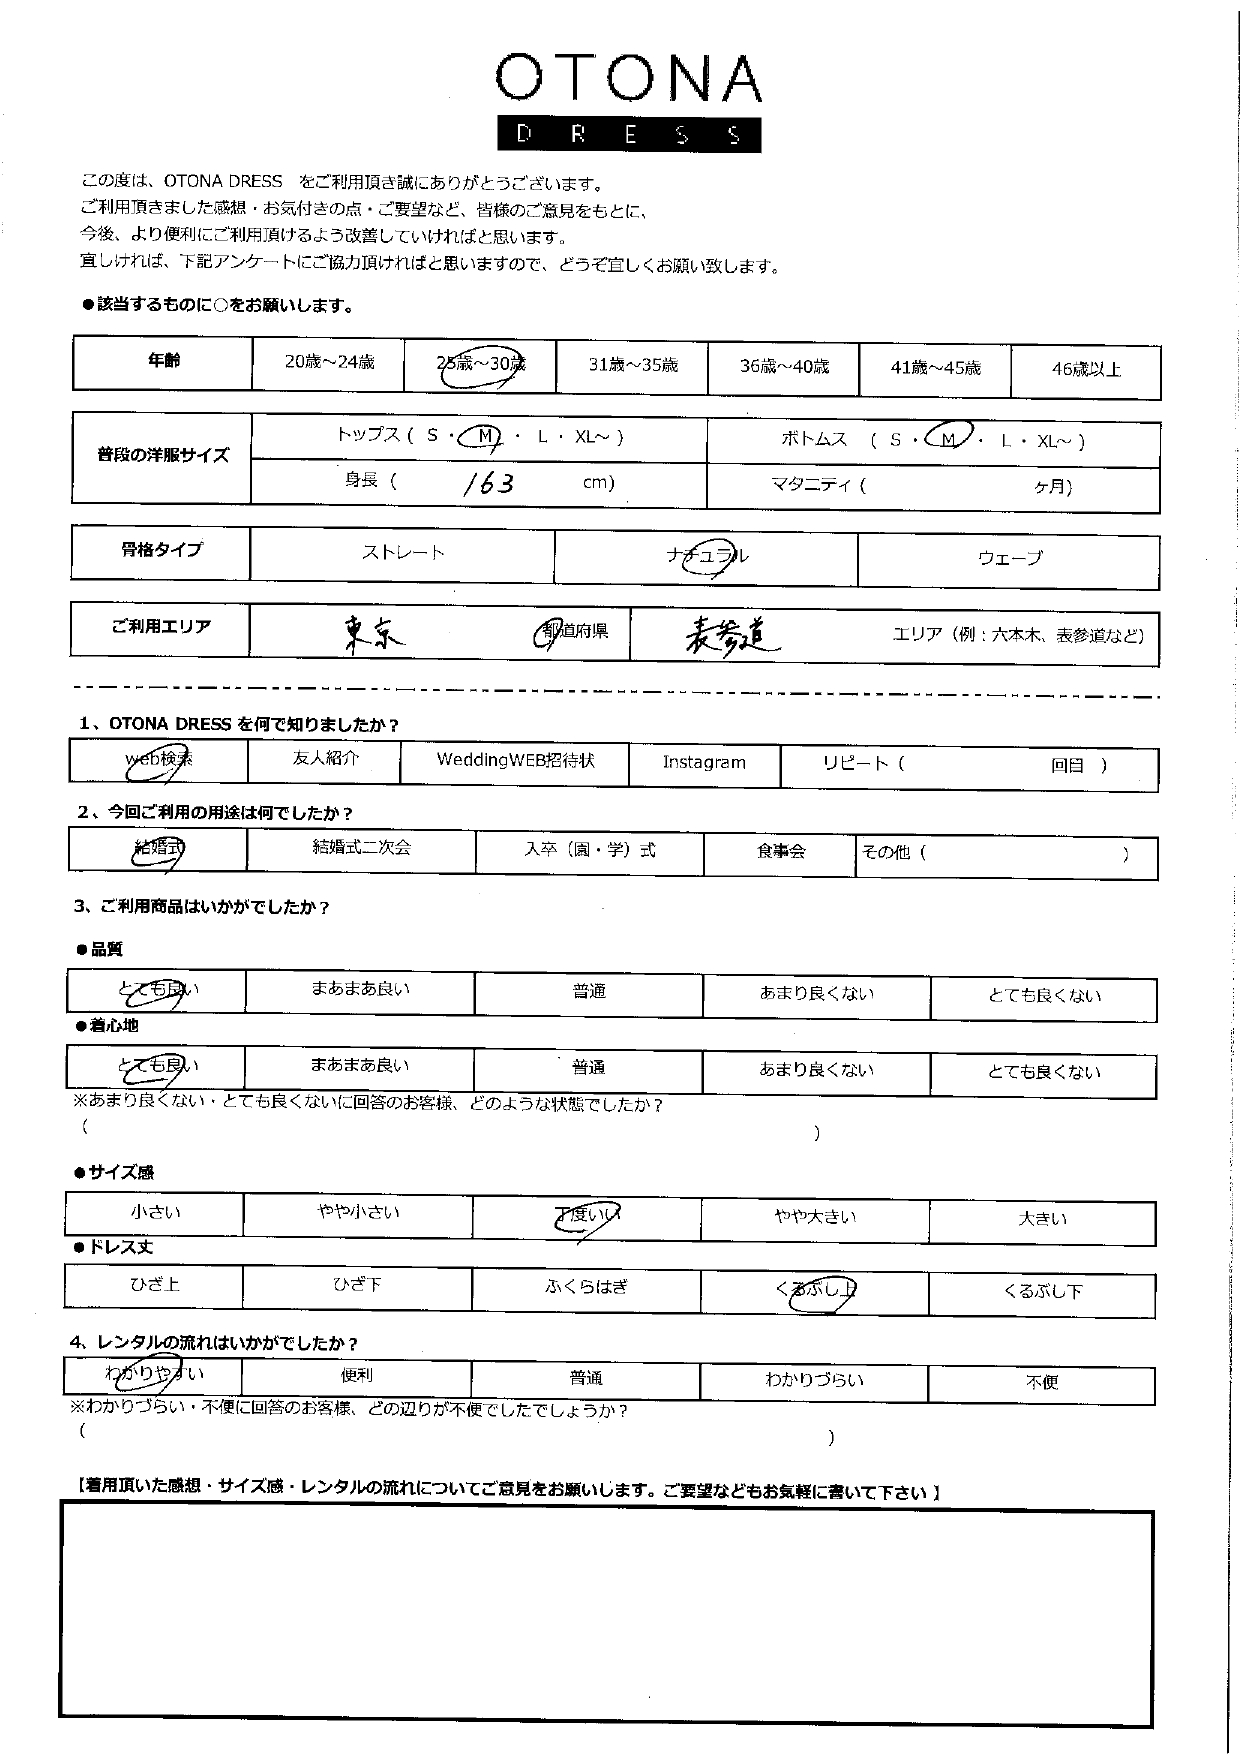 OTONA
DRESS
この度は、OTONA DRESS をご利用頂き誠にありがとうございます。
ご利用頂きました感想・お気付きの点・ご要望など、皆様のご意見をもとに、
今後、より便利にご利用頂けるよう改善していければと思います。
宜しければ、下記アンケートにご協力頂ければと思いますので、どうぞ宜しくお願い致します。
●該当するものに○をお願いします。
年齢 20歳～24歳 25歳～30歳 31歳～35歳 36歳～40歳 41歳～45歳 46歳以上
普段の洋服サイズ トップス ( S ・ M ・ L ・ XL～ ) ボトムス ( S ・ M ・ L ・ XL～ )
身長 ( 163 cm) マタニティ ( ヶ月)
骨格タイプ ストレート ナチュラル ウェーブ
ご利用エリア 東京 都道府県 表参道 エリア（例：六本木、表参道など）
1、OTONA DRESS を何で知りましたか？
web検索 友人紹介 WeddingWEB招待状 Instagram リピート ( 回目 )
2、今回ご利用の用途は何でしたか？
結婚式 結婚式二次会 入卒（園・学）式 食事会 その他 ( )
3、ご利用商品はいかがでしたか？
●品質
とても良い まあまあ良い 普通 あまり良くない とても良くない
●着心地
とても良い まあまあ良い 普通 あまり良くない とても良くない
※あまり良くない・とても良くないに回答のお客様、どのような状態でしたか？
( )
●サイズ感
小さい やや小さい 丁度いい やや大きい 大きい
●ドレス丈
ひざ上 ひざ下 ふくらはぎ くるぶし上 くるぶし下
4、レンタルの流れはいかがでしたか？
わかりやすい 便利 普通 わかりづらい 不便
※わかりづらい・不便に回答のお客様、どの辺りが不便でしたでしょうか？
( )
【着用頂いた感想・サイズ感・レンタルの流れについてご意見をお願いします。ご要望などもお気軽に書いて下さい 】